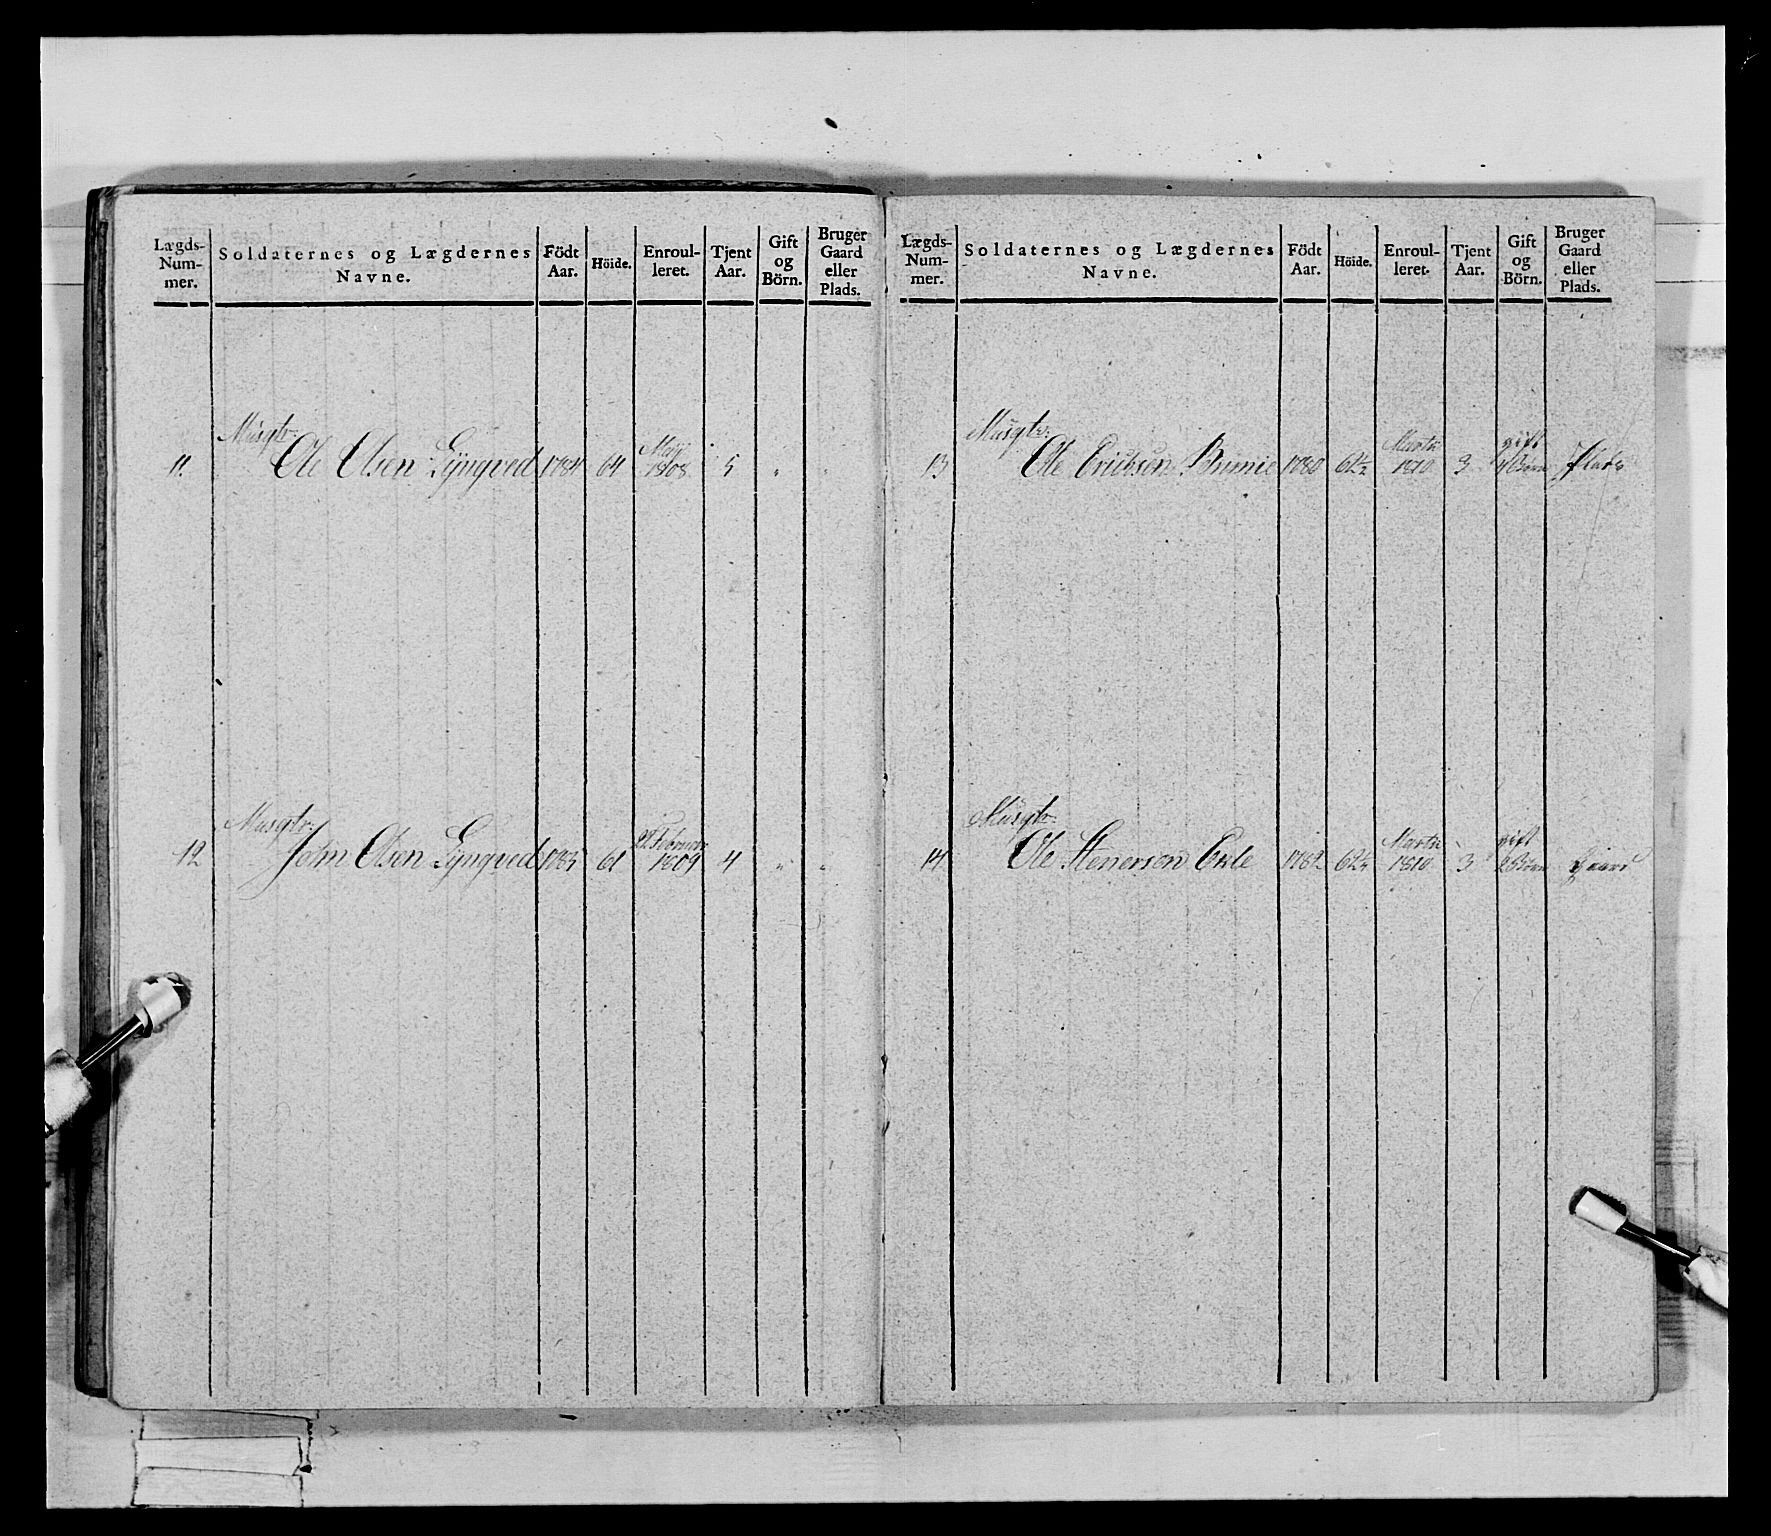 Lægds-Num-mer. Soldaternes og Lægdernes Navne. Födt Aar. Höide. Enroul-leret. Tjent Aar. Gift og Börn. Bruger Gaard eller Plads.
Musqtr:
11 Ole Olsen Lÿngved 1784 64 Maÿ 1808 5 " "
Musqtr:
12 John Olsen Lÿngved 1783 61 22 Februar 1809 4 " "
Lægds-Num-mer. Soldaternes og Lægdernes Navne. Födt Aar. Höide. Enroul-leret. Tjent Aar. Gift og Börn. Bruger Gaard eller Plads.
Musqtr:
13 Ole Erickson 1780 Martii 1810 3 gift Börn Plads
Musqtr:
14 Ole Stenerson 1782 Martii 1810 3 gift 2 Börn Gaard